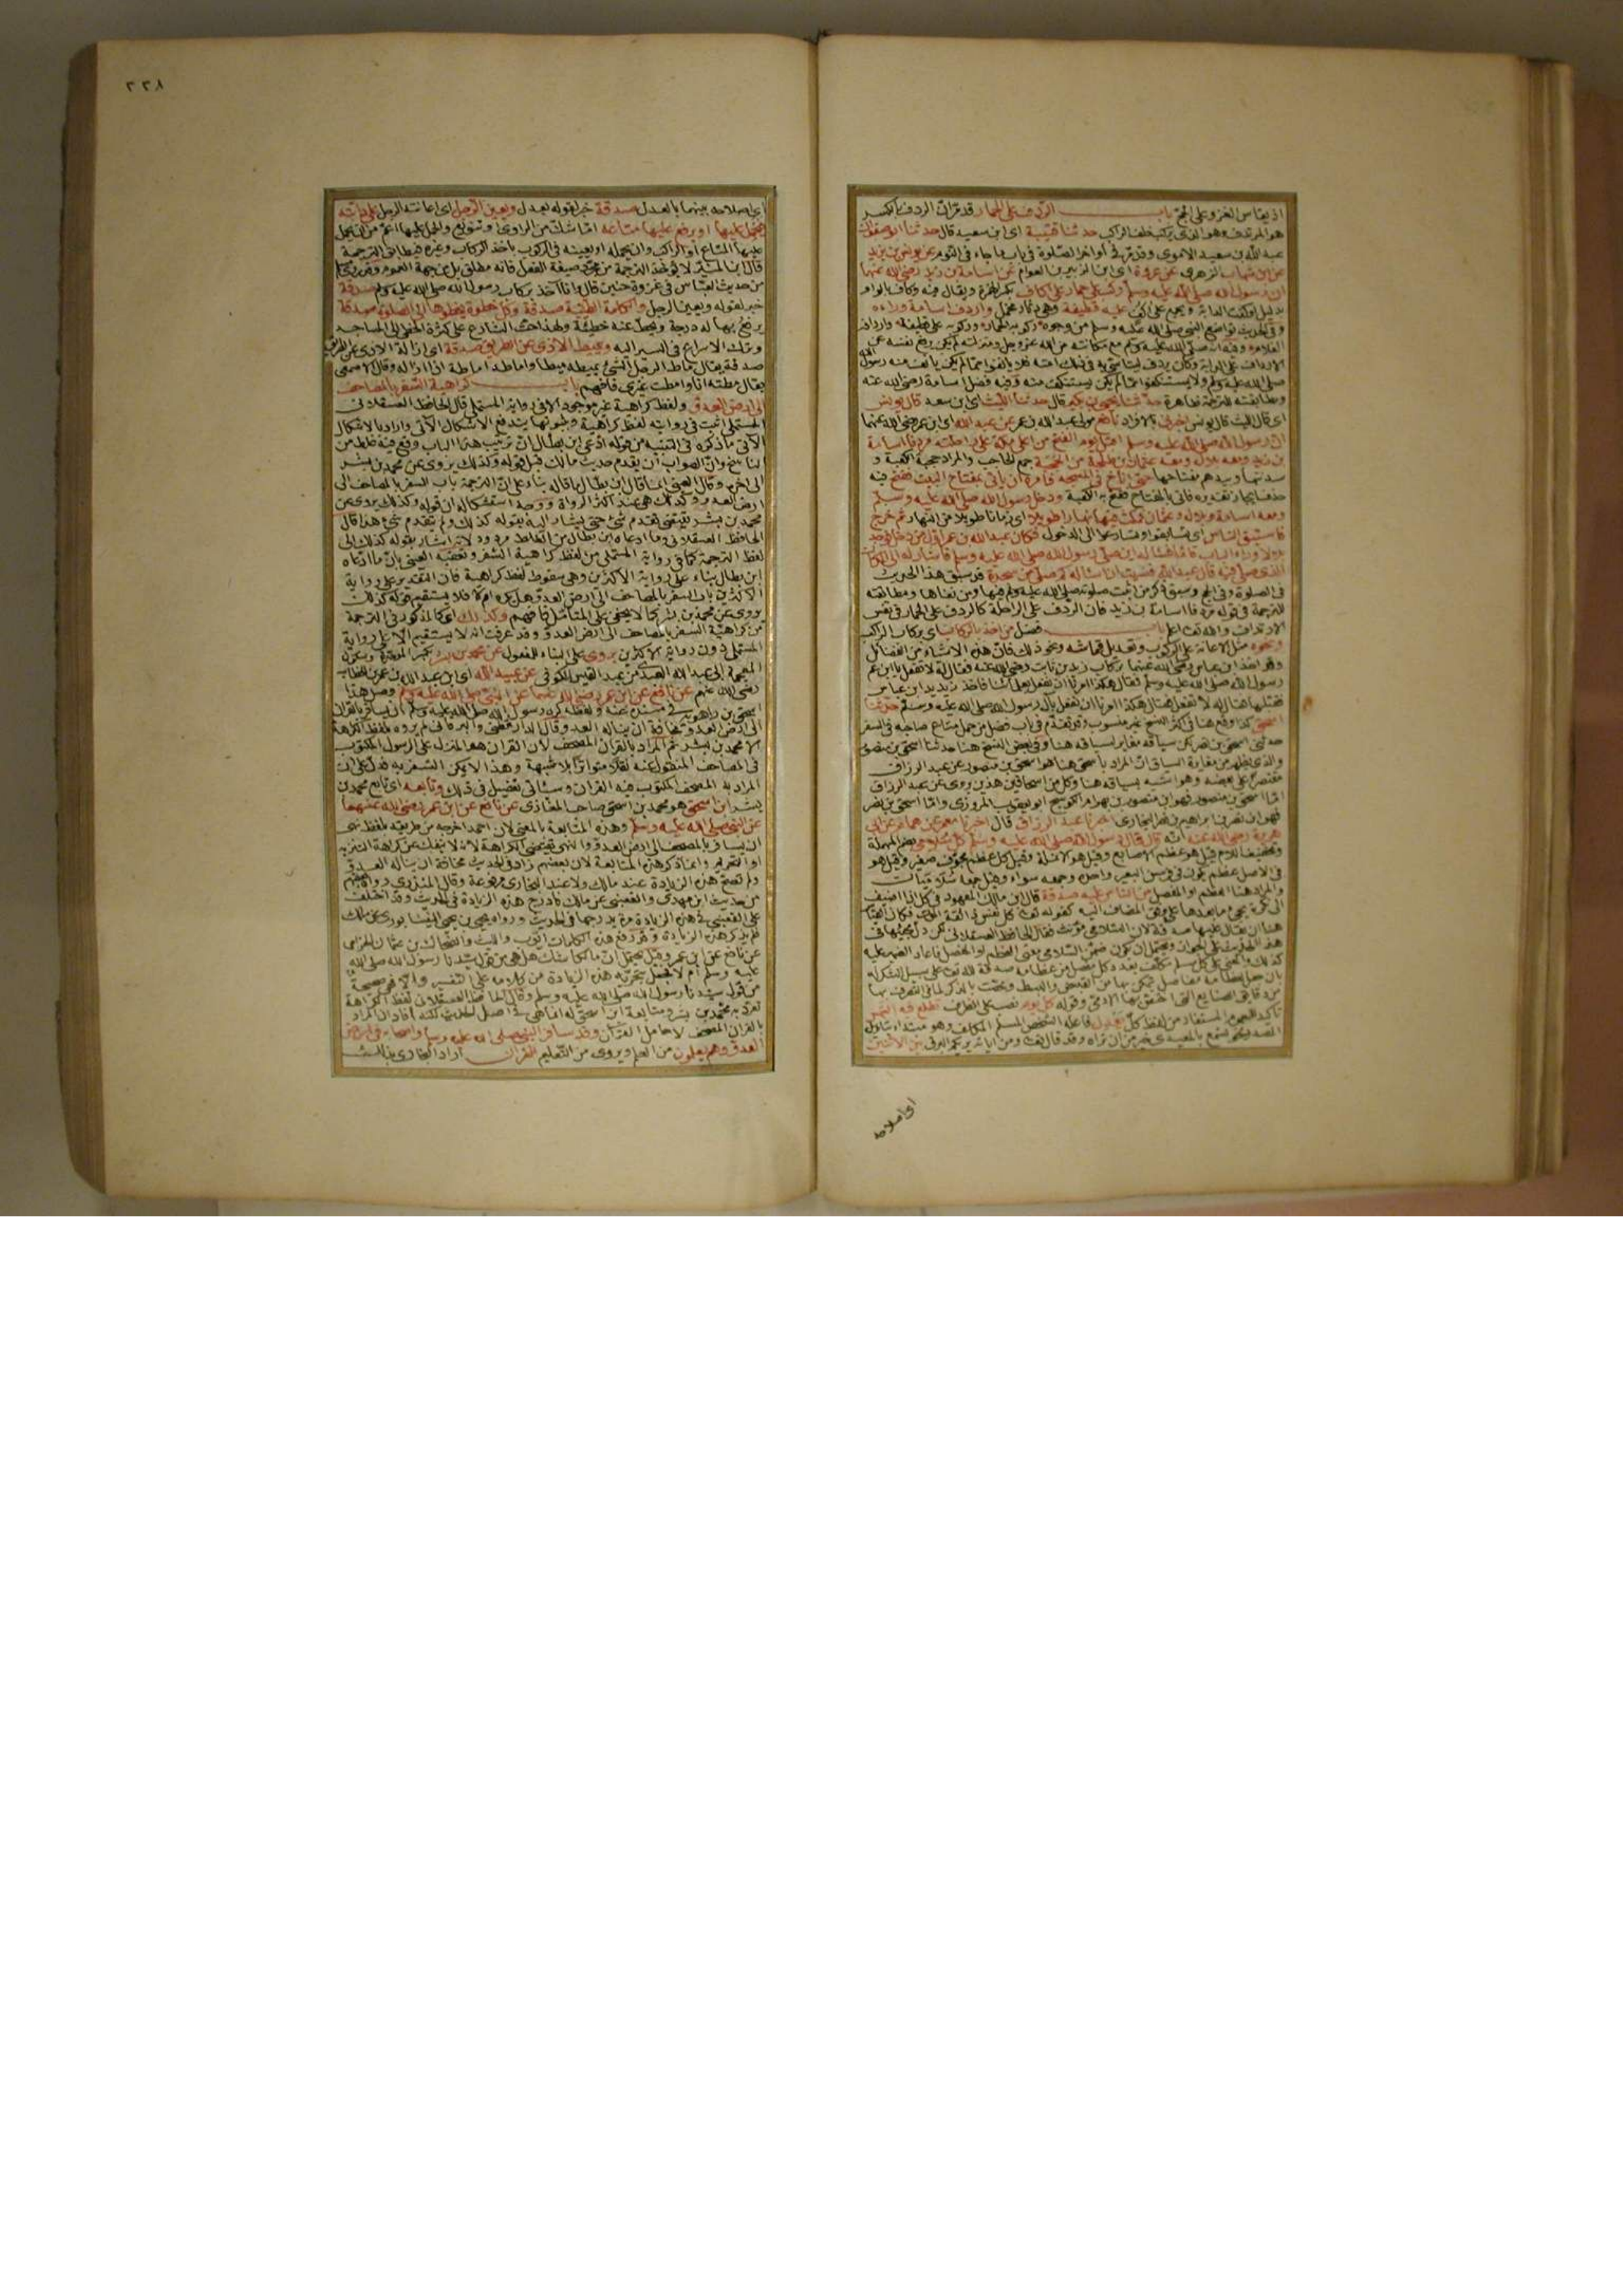 اذ يقاس الغزو على الحج باب الردف على الحمار قد مر ان الردف بالكسر
هو المرتدف وهو الذي يركب خلف الراكب حدثنا قتيبة اي ابن سعيد قال حدثنا ابو صفوان
عبد الله بن سعيد الاموي وقد مر في أواخر الصلوة في باب ما جاء في الثوم عن يونس بن يزيد
عن ابن شهاب الزهري عن عروة اي ابن الزبير بن العوام عن اسامة بن زيد رضي الله عنهما
ان رسول الله صلى الله عليه وسلم ركب على حمار على اكاف بكسر الهمزة ويقال فيه وكاف بالواو
بدليل اوكفت الدابة ويجمع على اكف عليه قطيفة وهي دثار مخمل واردف اسامة وراءه
وفي الحديث تواضع النبي صلى الله عليه وسلم من وجوه ركوبه الحمار وركوبه على قطيفة وارداف
الغلام وفيه انه صلى الله عليه وسلم مع مكانته من الله عز وجل ومنزلته لم يكن يرفع نفسه عن
الارداف على الدابة وكان يردف ليتأسى به في ذلك امته فلا يانفوا مما لم يكن يانف منه رسول الله
صلى الله عليه وسلم ولا يستنكفوا مما لم يكن يستنكف منه وفيه فضل اسامة رضي الله عنه
ومطابقته للترجمة ظاهرة حدثنا يحيى بن بكير قال حدثنا الليث اي ابن سعد قال يونس
اي قال الليث قال يونس اخبرني بالافراد نافع مولى عبد الله بن عمر عن عبد الله اي ابن عمر رضي الله عنهما
ان رسول الله صلى الله عليه وسلم اقبل يوم الفتح من اعلى مكة على راحلته مردفا اسامة
بن زيد ومعه بلال ومعه عثمان بن طلحة من الحجبة جمع الحاجب والمراد حجبة الكعبة و
سدنتها وبيدهم مفتاحها حتى اناخ في المسجد فامره ان ياتي بمفتاح البيت ففتح فيه
حذف ايجاز تقديره فاتى بالمفتاح ففتح به الكعبة ودخل رسول الله صلى الله عليه وسلم
ومعه اسامة وبلال وعثمان فمكث فيها نهارا طويلا اي زمانا طويلا من النهار ثم خرج
فاستبق الناس اي تسابقوا وتسارعوا الى الدخول فكان عبد الله بن عمر اول من دخل فوجد
بلالا وراء الباب قائما فساله اين صلى رسول الله صلى الله عليه وسلم فاشار له الى المكان
الذي صلى فيه قال عبد الله فنسيت ان اساله كم صلى من سجدة قد سبق هذا الحديث
في الصلوة وفي الحج وسبق ذكر من اثبت صلوته صلى الله عليه وسلم فيها ومن نفاها ومطابقته
للترجمة في قوله مردفا اسامة بن زيد فان الردف على الراحلة كالردف على الحمار في نفس
الارتداف والله تعالى اعلم باب فضل من اخذ بالركاب اي بركاب الراكب
ونحوه مثل الاعانة على الركوب وتعديل قماشه ونحو ذلك فان هذه الاشياء من الفضائل
وقد اخذ ابن عباس رضي الله عنهما بركاب زيد بن ثابت رضي الله عنه فقال له لا تفعل يا ابن عم
رسول الله صلى الله عليه وسلم فقال هكذا امرنا ان نفعل بعلمائنا فاخذ زيد يد ابن عباس
فقبلها فقال له لا تفعل فقال هكذا امرنا ان نفعل بآل رسول الله صلى الله عليه وسلم حدثنا
اسحق كذا وقع هنا في اكثر النسخ غير منسوب وقد تقدم في باب فضل من حمل متاع صاحبه في السفر
حدثني اسحق بن نصر لكن سياقه مغاير لسياقه هنا وفي بعض النسخ هنا حدثنا اسحق بن منصور
والذي يظهر من مغايرة السياق ان المراد باسحق هنا هو اسحق بن منصور عن عبد الرزاق
مقتصرا على بعضه وهو اشبه بسياقه هنا وكل من اسحاقين هذين يروي عن عبد الرزاق
اما اسحق بن منصور فهو ابن منصور بن بهرام الكوسج ابو يعقوب المروزي واما اسحق بن نصر
فهو ابن نصر بن ابراهيم بن نصر البخاري اخبرنا عبد الرزاق قال اخبرنا معمر عن همام عن ابي
هريرة رضي الله عنه انه قال قال رسول الله صلى الله عليه وسلم كل سلامى بضم المهملة
وتخفيف اللام قيل هو عظم الاصابع وقيل هو الانملة وقيل كل عظم مجوف صغير وقيل هو
في الاصل عظم يكون في فرسن البعير واحده وجمعه سواء وقيل جمعه سلاميات
والمراد هنا العظم او المفصل من الناس عليه صدقة قال ابن مالك المعهود في كل اذا اضيف
الى نكرة يجيء ما بعدها على وفق المضاف اليه كقوله تعالى كل نفس ذائقة الموت فكان القياس
هنا ان يقال عليها صدقة لان السلامى مؤنث فقال الحافظ العسقلاني لكن دل مجيئها في
هذا الحديث على الجواز ويحتمل ان يكون ضمن السلامى معنى العظم او المفصل فاعاد الضمير عليه
كذلك والمعنى على كل مسلم مكلف بعدد كل مفصل من عظامه صدقة لله تعالى على سبيل الشكر له
بان جعل عظامه مفاصل يتمكن بها من القبض والبسط وخصت بالذكر لما في التصرف بها
من دقائق الصنايع التي اختص بها الادمي وقوله كل يوم نصب على الظرف تطلع فيه الشمس
تاكيد للعموم المستفاد من لفظ كل يعدل فاعله الشخص المسلم المكلف وهو مبتدا بتأويل
العدل نحو تسمع بالمعيدي خير من ان تراه وقد قال تعالى ومن اياته يريكم البرق بين الاثنين
اي اصلاحه
٢٣٨
اي اصلاحه بينهما بالعدل صدقة خبر لقوله يعدل ويعين الرجل اي اعانته الرجل على دابته
فيحمل عليها او يرفع عليها متاعه اما شك من الراوي او تنويع والحمل عليها اعم من ان يحمل
عليها المتاع أو الراكب وان يحمله او يعينه في الركوب باخذ الركاب وغيره فيطابق الترجمة
قال ابن المنير لا تؤخذ الترجمة من مجرد صيغة الفعل فانه مطلق بل من جهة العموم وقد روى مسلم
من حديث العباس في غزوة حنين قال وانا آخذ بركاب رسول الله صلى الله عليه وسلم صدقة
خبر لقوله ويعين الرجل والكلمة الطيبة صدقة وكل خطوة يخطوها الى الصلوة صدقة
يرفع بها له درجة ويحط عنه خطيئة ولهذا حث الشارع على كثرة الخطى الى المساجد
وترك الاسراع في السير اليه ويميط الاذى عن الطريق صدقة اي ازالة الاذى عن الطريق
صدقة يقال ماط الرجل الشيء يميطه ميطا واماطه اماطة اي ازاله وقال الاصمعي
يقال مطته انا وامطت غيري فافهم باب كراهية السفر بالمصاحف
الى ارض العدو ولفظ كراهية غير موجود الا في رواية المستملي قال الحافظ العسقلاني
المستملي اثبت في روايته لفظ كراهية وبثبوتها يندفع الاشكال الآتي واراد بالاشكال
الآتي ما ذكره في التنبيه من قوله ادعى ابن بطال ان ترتيب هذا الباب وقع فيه غلط من
الناسخ وان الصواب ان يقدم حديث مالك قبل قوله وكذلك يروى عن محمد بن بشر
الى اخره وقال العيني انما قال ابن بطال ما قاله بناء على ان الترجمة باب السفر بالمصاحف الى
ارض العدو وكذلك هي عند اكثر الرواة ووجه استشكاله ان قوله وكذلك يروى عن
محمد بن بشر يقتضي تقدم شيء حتى يشار اليه بقوله كذلك ولم يتقدم شيء هذا قال
الحافظ العسقلاني وما ادعاه ابن بطال من الغلط مردود لانه اشار بقوله كذلك الى
لفظ الترجمة كما في رواية المستملي من لفظ كراهية السفر وتعقبه العيني بان ما ادعاه
ابن بطال بناء على رواية الاكثرين وهي سقوط لفظ كراهية فان التقدير على رواية
الاكثرين باب السفر بالمصاحف الى ارض العدو هل يكره ام لا فلا يستقيم قوله كذلك
يروى عن محمد بن بشر كما لا يخفى على المتأمل فافهم وكذلك اي كالمذكور في الترجمة
من كراهية السفر بالمصاحف الى ارض العدو وقد عرفت انه لا يستقيم الا على رواية
المستملي دون رواية الاكثرين يروى على البناء للمفعول عن محمد بن بشر بكسر الموحدة وسكون
المعجمة ابي عبد الله العبدي من عبد القيس الكوفي عن عبيد الله اي ابن عبد الله بن عمر بن الخطاب
رضي الله عنهم عن نافع عن ابن عمر رضي الله عنهما عن النبي صلى الله عليه وسلم وصل هذا
اسحق بن راهويه في مسنده عنه ولفظه كره رسول الله صلى الله عليه وسلم ان يسافر بالقرآن
الى ارض العدو مخافة ان يناله العدو وقال الدارقطني والبرقاني لم يروه بلفظ الكراهة
الا محمد بن بشر ثم المراد بالقرآن المصحف لان القرآن هو المنزل على الرسول المكتوب
في المصاحف المنقول عنه نقلا متواترا بلا شبهة وهذا لا يمكن السفر به فدل على ان
المراد به المصحف المكتوب فيه القرآن وسيأتي تفصيل في ذلك وتابعه اي تابع محمد بن
بشر ابن اسحق هو محمد بن اسحق صاحب المغازي عن نافع عن ابن عمر رضي الله عنهما
عن النبي صلى الله عليه وسلم وهذه المتابعة بالمعنى لان احمد اخرجه من طريقه بلفظ نهى
ان يسافر بالمصحف الى ارض العدو والنهي يقتضي الكراهة لانه لا ينفك عن كراهة التنزيه
او التحريم وانما ذكر هذه المتابعة لان بعضهم زاد في الحديث مخافة ان يناله العدو
ولم تصح هذه الزيادة عند مالك ولا عند البخاري مرفوعة وقال المنذري رواه بعضهم
من حديث ابن مهدي والقعنبي عن مالك فادرج هذه الزيادة في الحديث وقد اختلف
على القعنبي في هذه الزيادة فمرة يدرجها في الحديث ورواه يحيى بن يحيى النيسابوري عن مالك
فلم يذكر هذه الزيادة وقد رفع هذه الكلمات ايوب والليث والضحاك بن عثمان الحزامي
عن نافع عن ابن عمر وقيل يحتمل ان مالكا شك هل هي من قول سيدنا رسول الله صلى الله
عليه وسلم ام لا فجعل بتحريه هذه الزيادة من كلامه على التفسير والا فهي صحيحة
من قول سيدنا رسول الله صلى الله عليه وسلم وقال الحافظ العسقلاني لفظ الكراهة
تفرد به محمد بن بشر ومتابعة ابن اسحق له انما هي في اصل الحديث لكنه افاد ان المراد
بالقرآن المصحف لا حامل القرآن وقد سافر النبي صلى الله عليه وسلم واصحابه في ارض
العدو وهم يعلمون من العلم ويروى من التعليم القرآن اراد البخاري بذلك